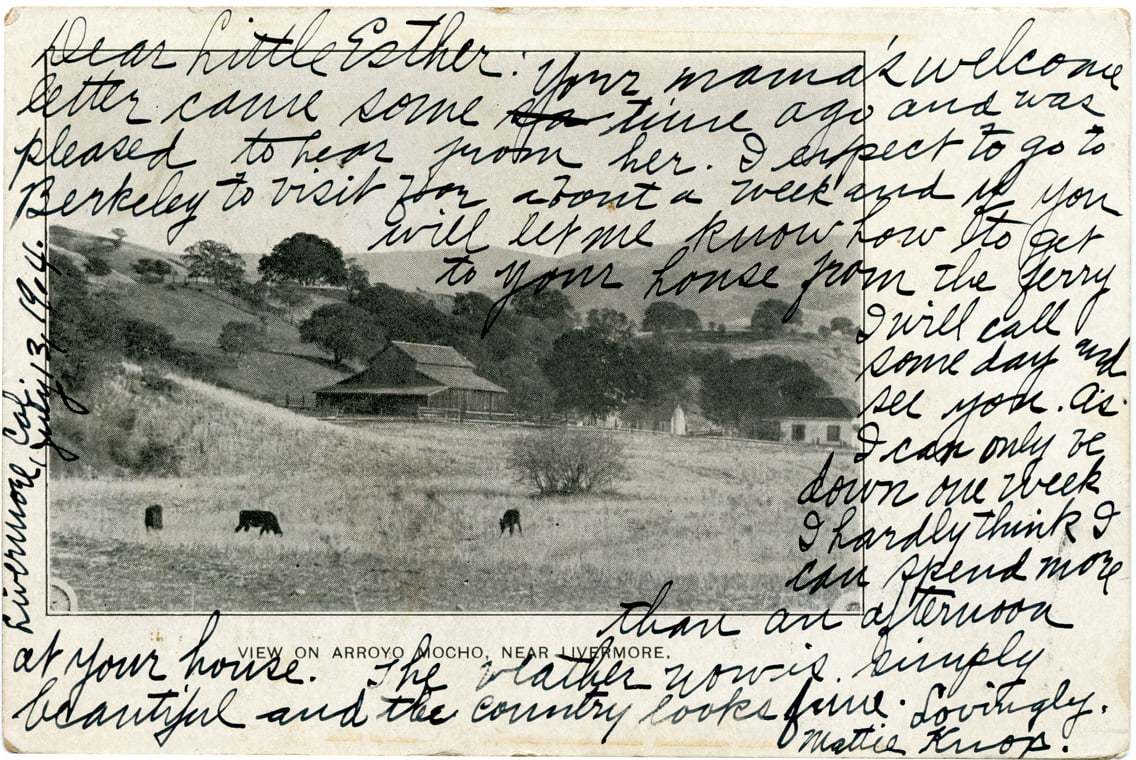 Dear Little Esther: Your mama's welcome
letter came some time ago and was
pleased to hear from her. I expect to go to
Berkeley to visit for about a week and if you
will let me know how to get
to your house from the ferry
I will call
some day and
see you. As
I can only be
down one week
I hardly think I
can spend more
than an afternoon
at your house. The weather now is simply
beautiful and the country looks fine. Lovingly.
Mattie
Livermore, Cal.
July 13, 1904.
VIEW ON ARROYO MOCHO, NEAR LIVERMORE.